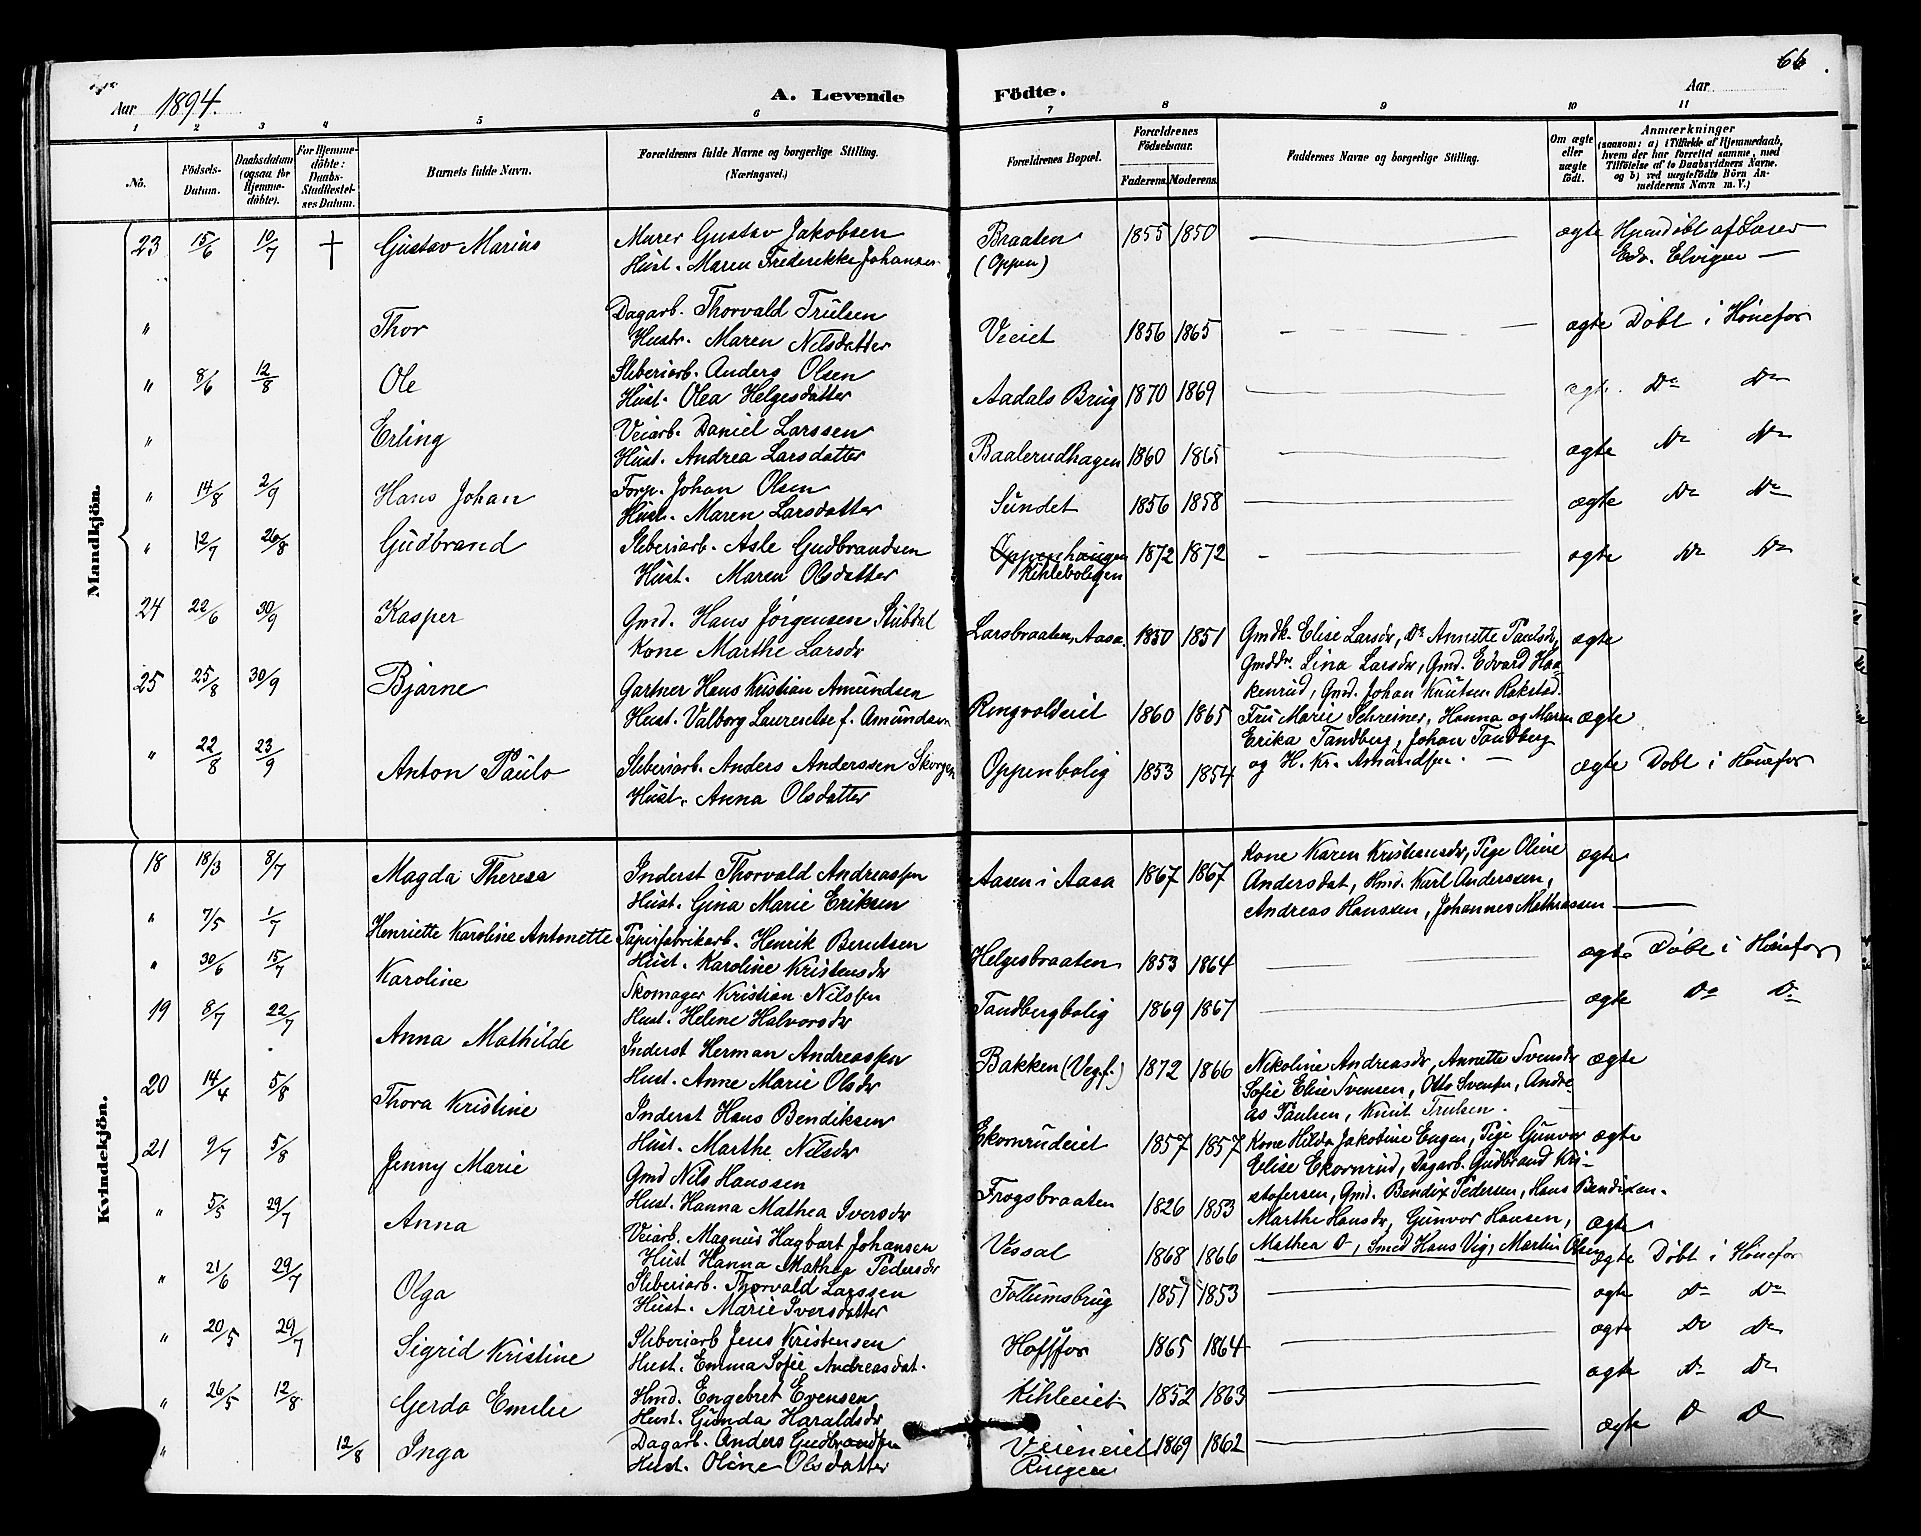 66.
Aar 1894.
A. Levende Födte.
Aar
1 2 3 4 5 6 7 8 9 10 11
No.
Födsels-Datum.
Daabsdatum (ogsaa for Hjemme-döbte).
For Hjemme-döbte: Daabs-Stadfæstel-ses Datum.
Barnets fulde Navn.
Forældrenes fulde Navne og borgerlige Stilling. (Næringsvei.)
Forældrenes Bopæl.
Forældrenes Födselsaar.
Faderens. Moderens.
Faddernes Navne og borgerlige Stilling.
Om ægte eller uægte födt.
Anmærkninger
(saasom: a) i Tilfælde af Hjemmedaab, hvem der har forrettet samme, med Tilföielse af to Daabsvidners Navne. og b) ved uægtefödte Börn An-melderens Navn m. V.)
Mandkjön.
23 15/6 10/7 † Gustav Marius Murer Gustav Jakobsen Braaten 1855 1850 ægte Hjemdøbt af Lærer
Hust. Maren Frederikke Johansen (Oppen) Edv. Elvigen
" Thor Dagarb. Thorvald Trulsen
Hustr. Maren Nilsdatter Veiet 1856 1865 ægte Døbt i Hönefos
" 8/6 12/8 Ole Sliberiarb. Anders Olsen
Hust. Olea Helgesdatter Aadals Brug 1870 1869 ægte Do Do
" Erling Veiarb. Daniel Larssen
Hust. Andrea Larsdatter Baalerudhagen 1860 1865 ægte Do Do
" 14/8 2/9 Hans Johan Forp. Johan Olsen
Hust. Maren Larsdatter Sundet 1856 1858 ægte Do Do
" 12/7 26/8 Gudbrand Sliberiarb. Asle Gudbrandsen Oppenhaugen 1872 1872 ægte Do Do
Hust. Maren Olsdatter Kihleboligen
24 22/6 30/9 Kasper Gmd. Hans Jørgensen Stubdal
Kone Marthe Larsdr Larsbraaten, Aasa. 1850 1851 Gmdk. Elise Larsdr, Do Annette Paulsdr, ægte
Gmddr. Lina Larsdr, Gmd. Edvard Haa-
kenrud, Gmd. Johan Knutsen Rakstad.
25 25/8 30/9 Bjarne Gartner Hans Kristian Amundsen
Hust. Valborg Laurentse f. Amundsen Ringvoldeiet 1860 1865 Fru Marie Schreiner, Hanna og Maren ægte
Erika Tandberg, Johan Tandberg
og H. Kr. Amundsen.
" 22/8 23/9 Anton Paulo Sliberiarb. Anders Anderssen Skorgen Oppenbolig 1853 1854 ægte Døbt i Hönefos
Hust. Anna Olsdatter
Kvindekjön.
18 18/3 8/7 Magda Therese Inderst Thorvald Andreassen
Hust. Gina Marie Eriksen Aasen i Aasa 1867 1867 Kone Karen Kristensdr, Pige Oline ægte
Andersdat, Hmd. Karl Anderssen,
Andreas Hansen, Johannes Mathiassen
" 7/5 1/7 Henriette Karoline Antonette Papirfabrikarb. Henrik Berntsen
Hust. Karoline Kristensdr Helgesbraaten 1853 1864 ægte Døbt i Hönefos
" 30/6 15/7 Karoline Skomager Kristian Nilssen
Hust. Helene Halvorsdr Tandbergbolig 1869 1867 ægte Do Do
19 8/7 22/7 Anna Mathilde Inderst Herman Andreassen
Hust. Anne Marie Olsdr Bakken (Vegf.) 1872 1866 Nikoline Andreasdr, Annette Svensdr ægte
Sofie Elise Svensen, Otto Svensen, Andre-
as Paulsen, Knut Trulsen.
20 14/4 5/8 Thora Kristine Inderst Hans Bendiksen
Hust. Marthe Nilsdr Ekornrudeiet 1857 1857 Kone Hilda Jakobine Engen, Pige Gunvor ægte
Elise Ekornrud, Dagarb. Gudbrand Kri-
stofersen, Gmd. Bendix Pedersen, Hans Bendixen.
21 9/7 5/8 Jenny Marie Gmd Nils Hanssen
Hust. Hanna Mathea Iversdr Frogsbraaten 1826 1853 Marthe Hansdr, Gunvor Hansen, ægte
Mathea Do, Smed Hans Vig, Martin Olsen
" 5/5 29/7 Anna Veiarb. Magnus Hagbart Johansen
Hust Hanna Mathea Pedersdr Vessal 1868 1866 ægte Døbt i Hönefos
" 21/6 29/7 Olga Sliberiarb. Thorvald Larssen
Hust. Marie Iversdatter Follumsbrug 1851 1853 ægte Do Do
" 20/5 29/7 Sigrid Kristine Sliberiarb Jens Kristensen
Hust. Emma Sofie Andreasdat. Hofsfos 1865 1864 ægte Do Do
" 26/5 12/8 Gerda Emilie Hmd. Engebret Evensen
Hust. Gunda Haraldsdr Kihleeiet 1852 1863 ægte Do Do
" 12/8 Inga Dagarb. Anders Gudbrandsen
Hust. Oline Olsdatter Veieneiet 1869 1862 ægte D D
Ringen